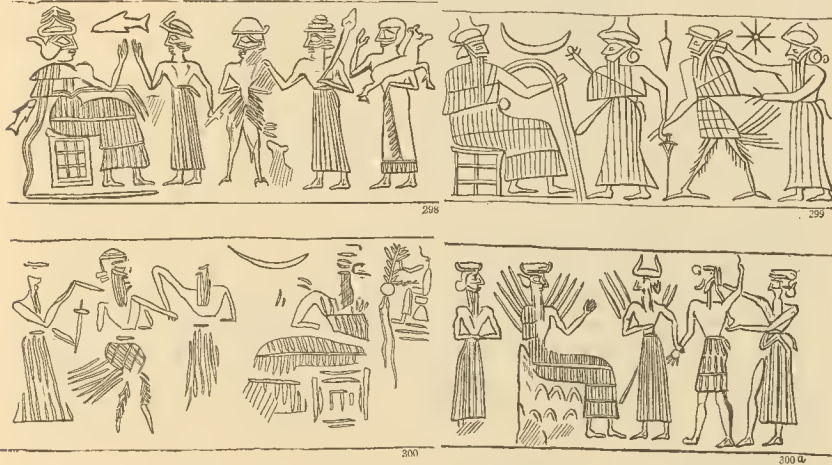 298
299
300
300a